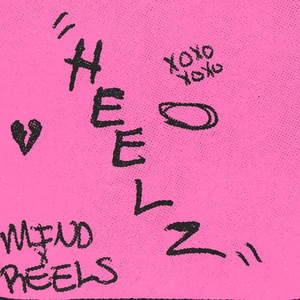 "HEELZ"
XOXO
XOXO
MIND
REELS